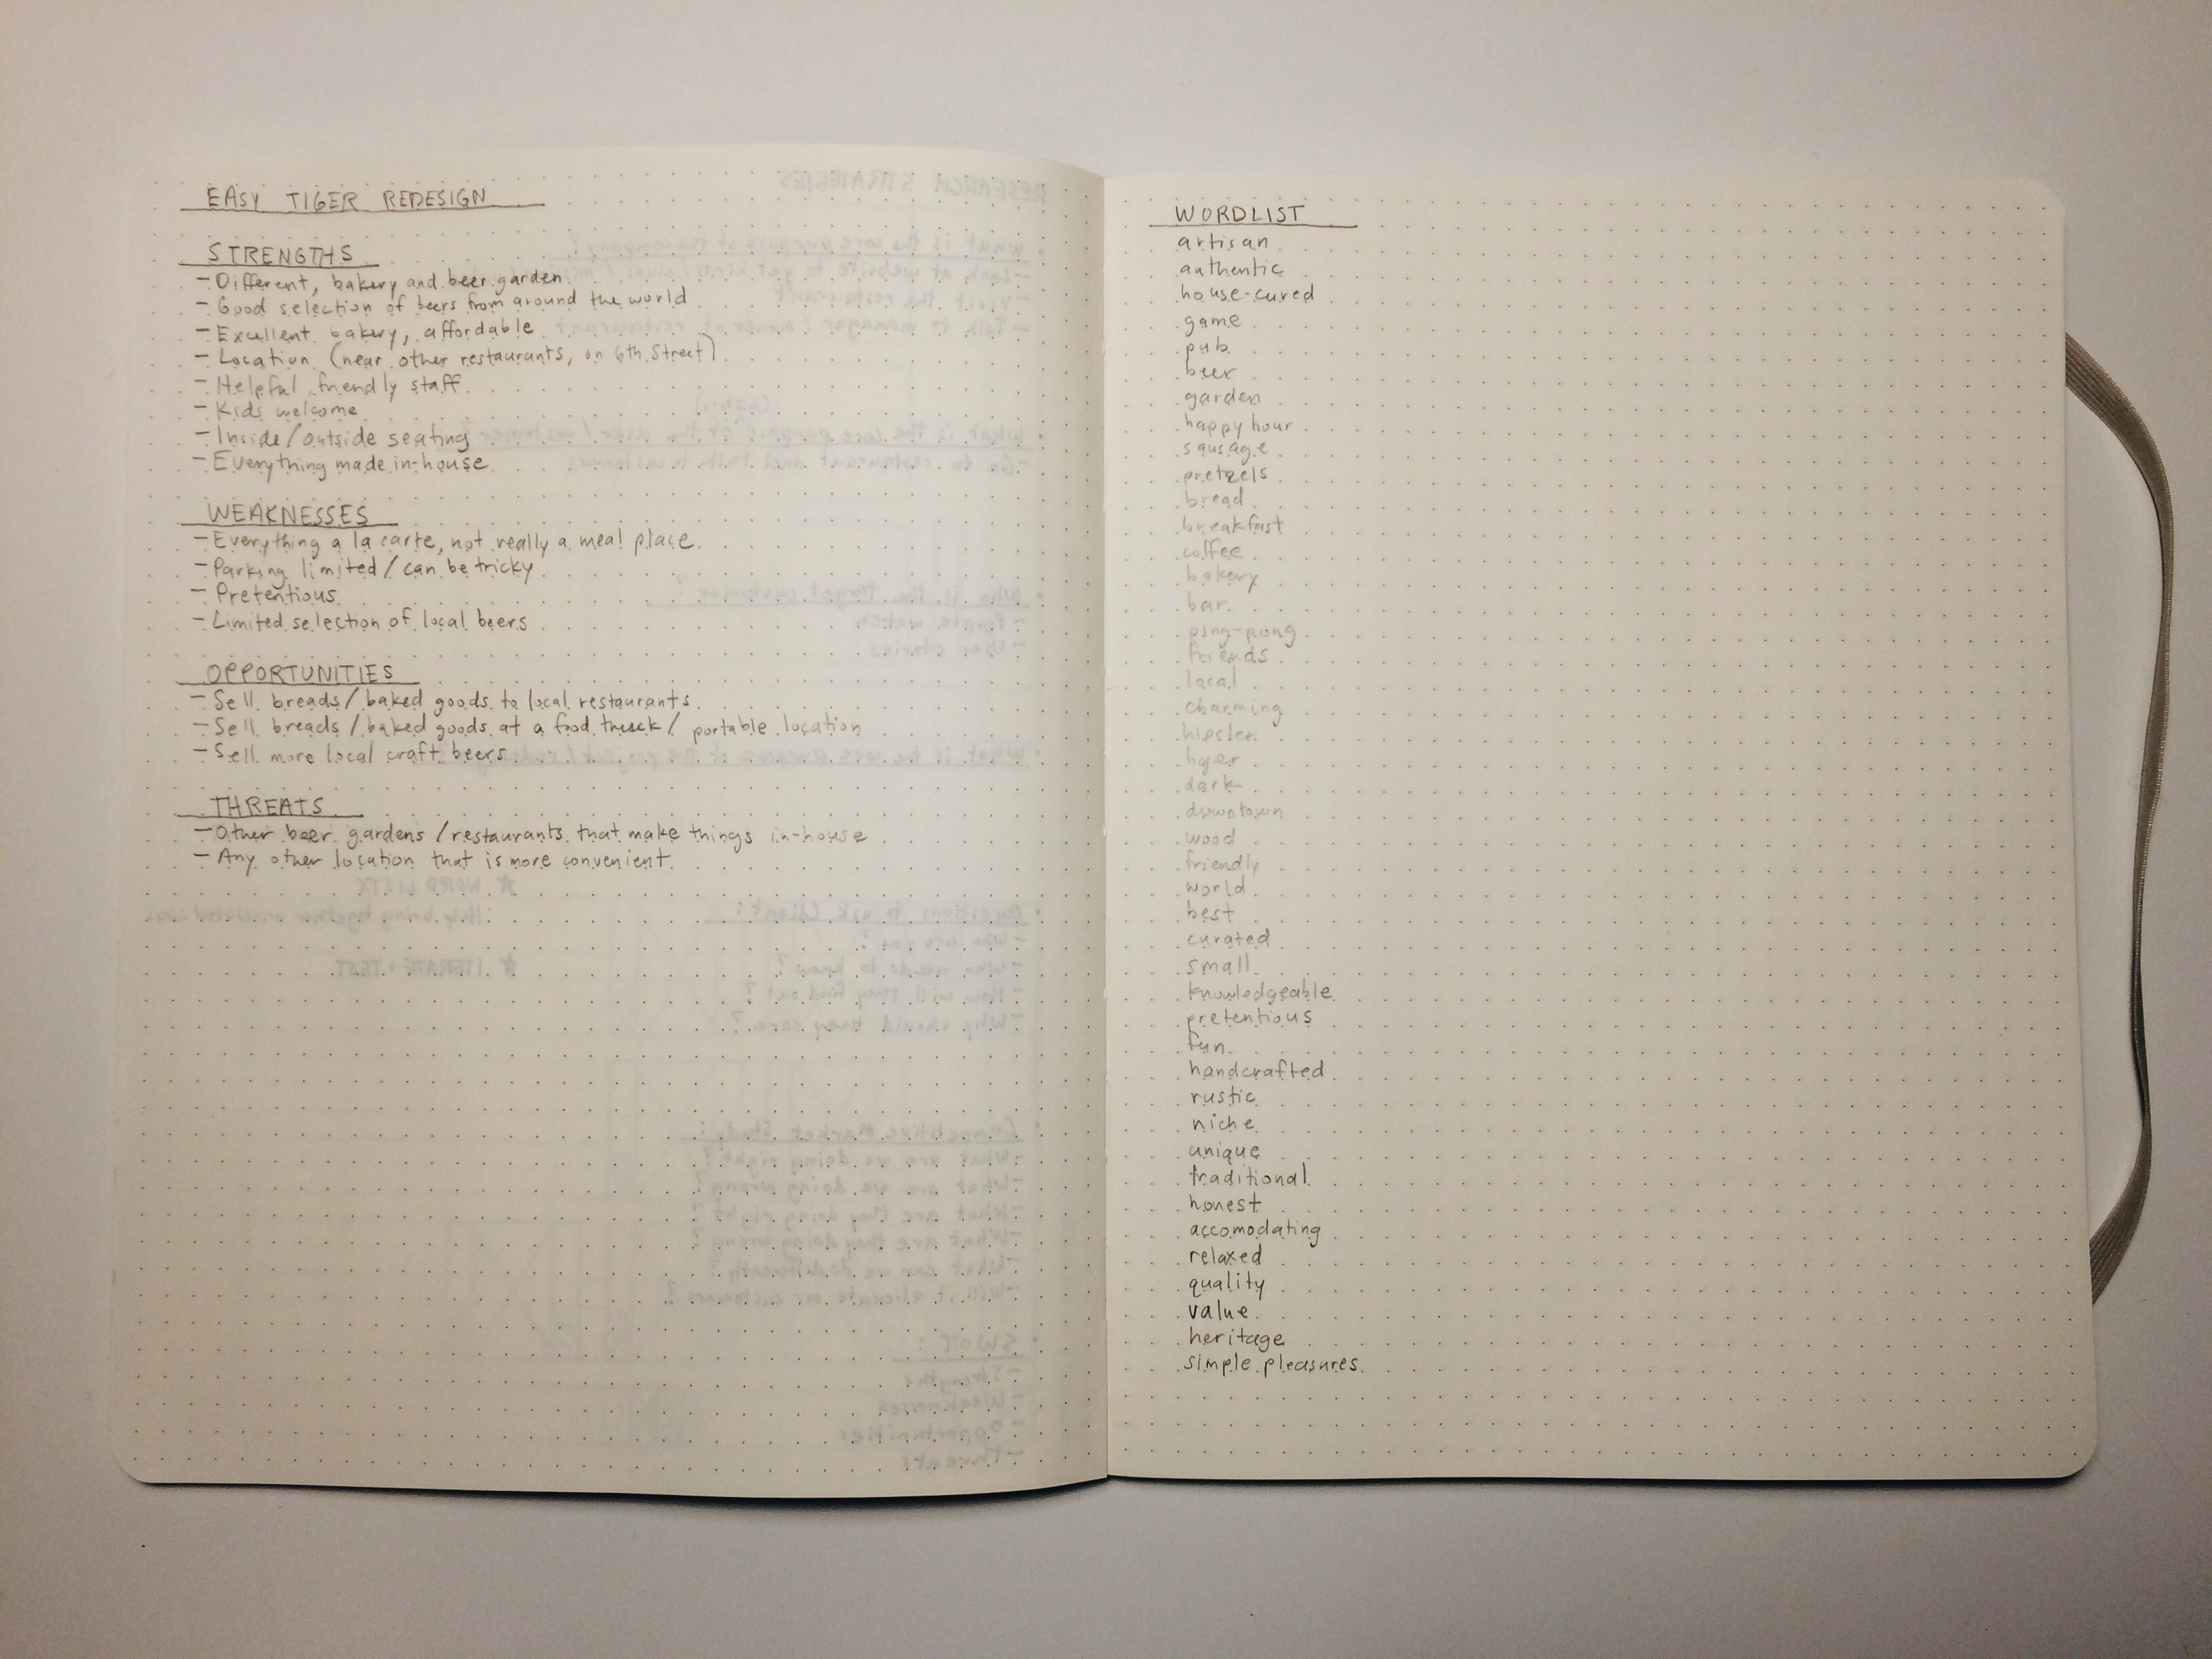 EASY TIGER REDESIGN
STRENGTHS
- Different, bakery and beer garden
- Good selection of beers from around the world
- Excellent bakery, affordable
- Location (near other restaurants, on 6th Street)
- Helpful, friendly staff
- Kids welcome
- Inside/outside seating
- Everything made in-house
WEAKNESSES
- Everything a la carte, not really a meal place
- Parking limited/can be tricky
- Pretentious
- Limited selection of local beers
OPPORTUNITIES
- Sell breads/baked goods to local restaurants
- Sell breads/baked goods at a food truck/portable location
- Sell more local craft beers
THREATS
- Other beer gardens/restaurants that make things in-house
- Any other location that is more convenient
WORDLIST
artisan
authentic
house-cured
game
pub
beer
garden
happy hour
sausage
pretzels
bread
breakfast
coffee
bakery
bar
ping-pong
friends
local
charming
hipster
dark
downtown
wood
friendly
world
best
curated
small
knowledgeable
pretentious
fun
handcrafted
rustic
niche
unique
traditional
honest
accomodating
relaxed
quality
value
heritage
simple pleasures